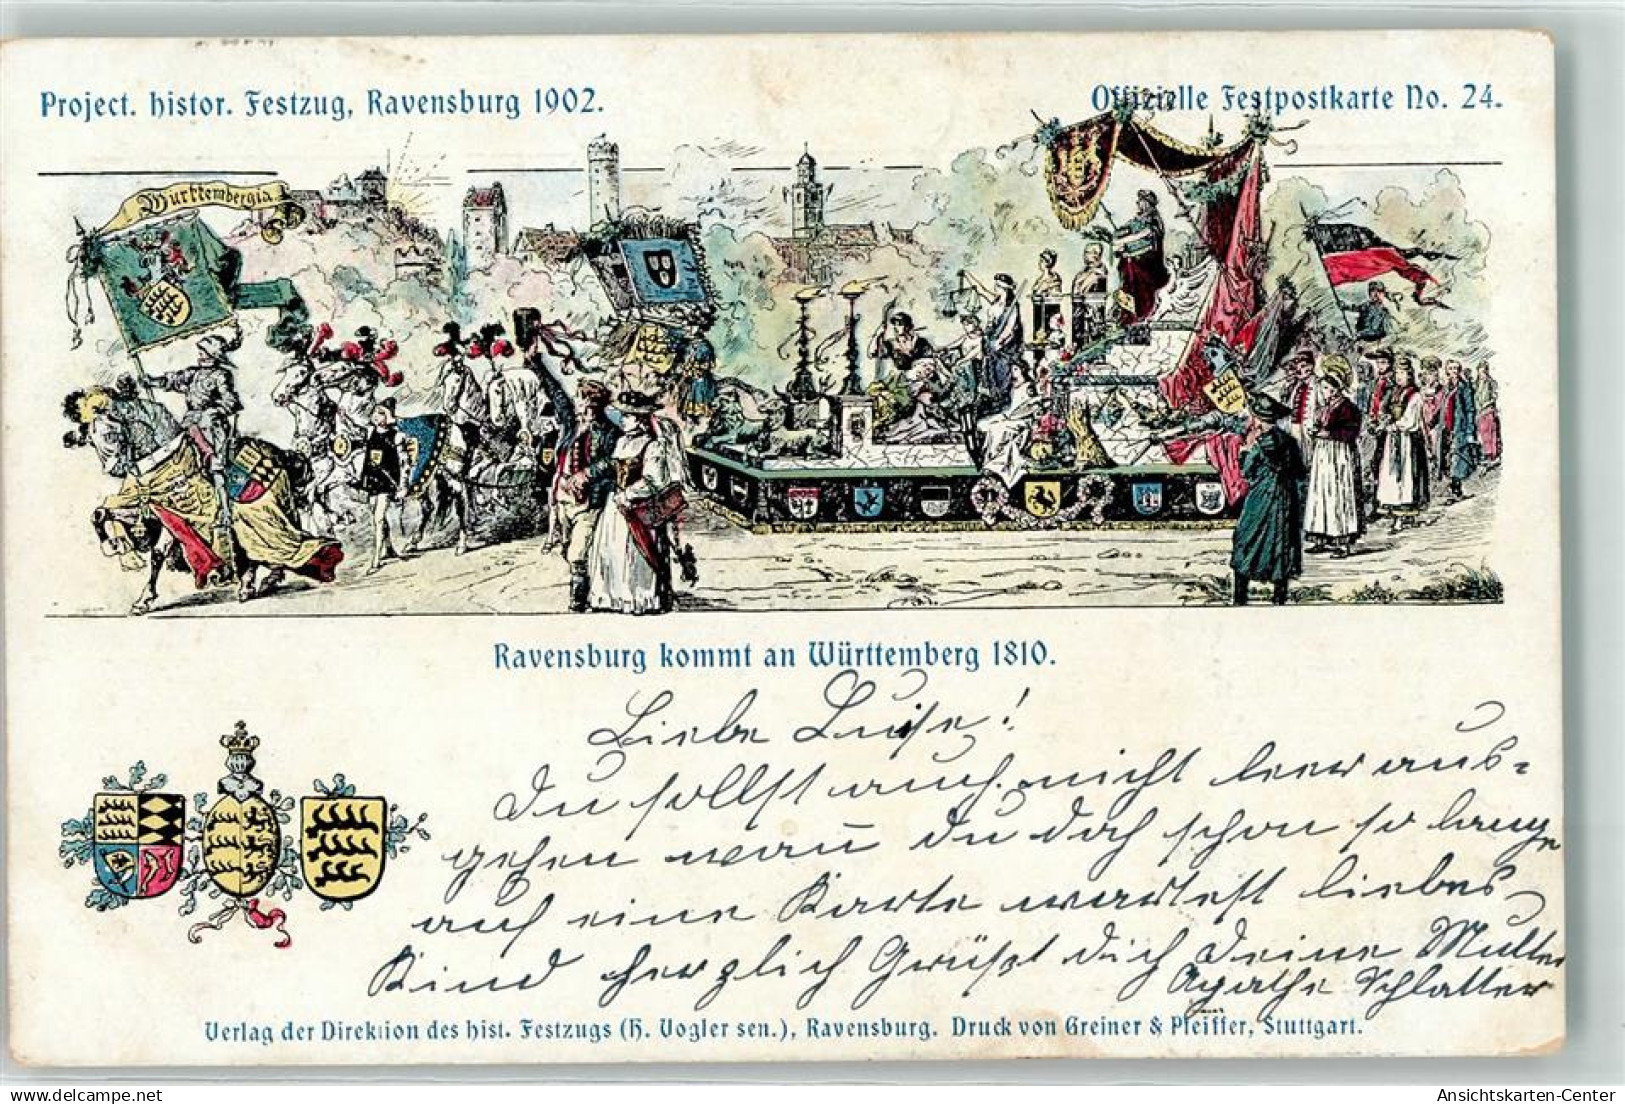 Project. histor. Festzug, Ravensburg 1902.
Offizielle Festpostkarte No. 24.
Württembergia
Ravensburg kommt an Württemberg 1810.
Liebe Luise!
Du sollst auch nicht leer aus-
gehen wan̄ Du doch schon so lange
auf eine Karte wartest liebes
Kind herzlich Grüßt dich Deine Mutter
Agathe Schlatter
Verlag der Direktion des hist. Festzugs (H. Vogler sen.), Ravensburg. Druck von Greiner & Pfeiffer, Stuttgart.
delcampe.net
Ansichtskarten-Center